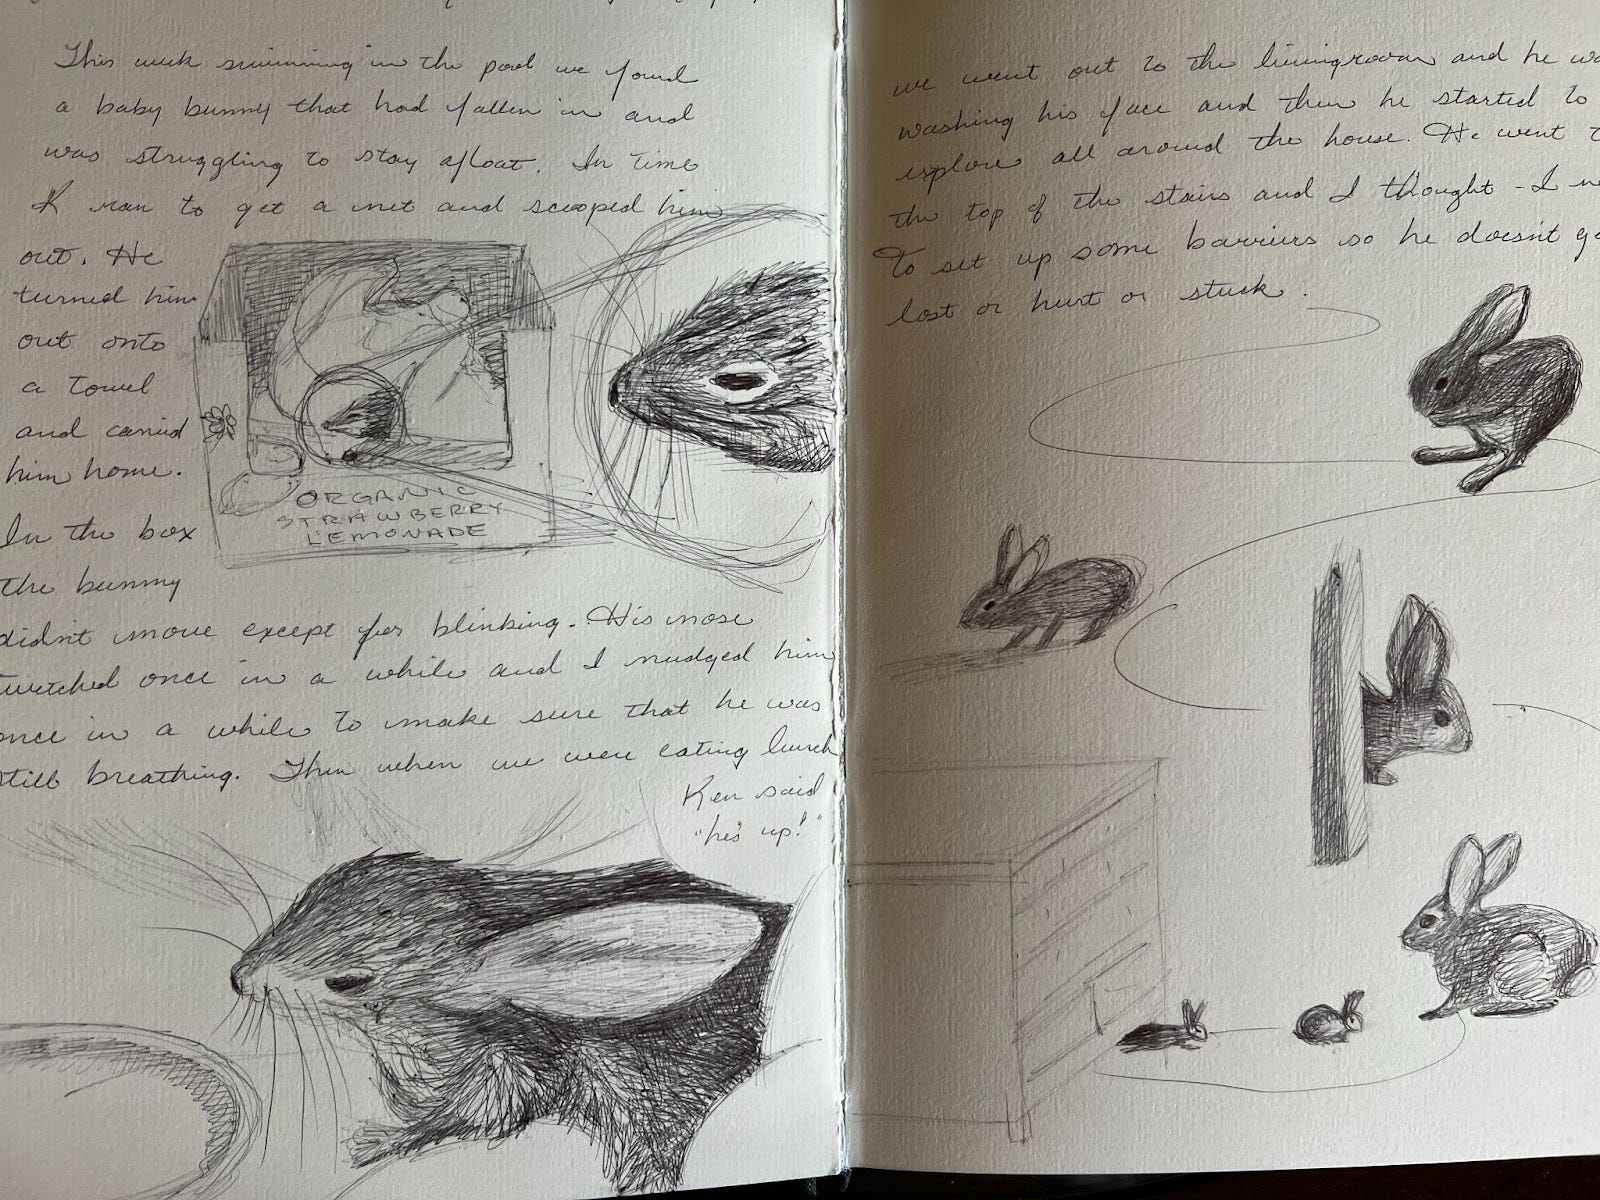 This week swimming in the pool we found
a baby bunny that had fallen in and
was struggling to stay afloat. In time
K ran to get a net and scooped him
out. He
turned him
out onto
a towel
and carried
him home.
In the box
the bunny
didn't move except for blinking. His nose
twitched once in a while and I nudged him
once in a while to make sure that he was
still breathing. Then when we were eating lunch
Ken said
"he's up!"
ORGANIC
STRAWBERRY
LEMONADE
we went out to the livingroom and he wa
washing his face and then he started to
explore all around the house. He went t
the top of the stairs and I thought - I ne
to set up some barriers so he doesn't ge
lost or hurt or stuck.